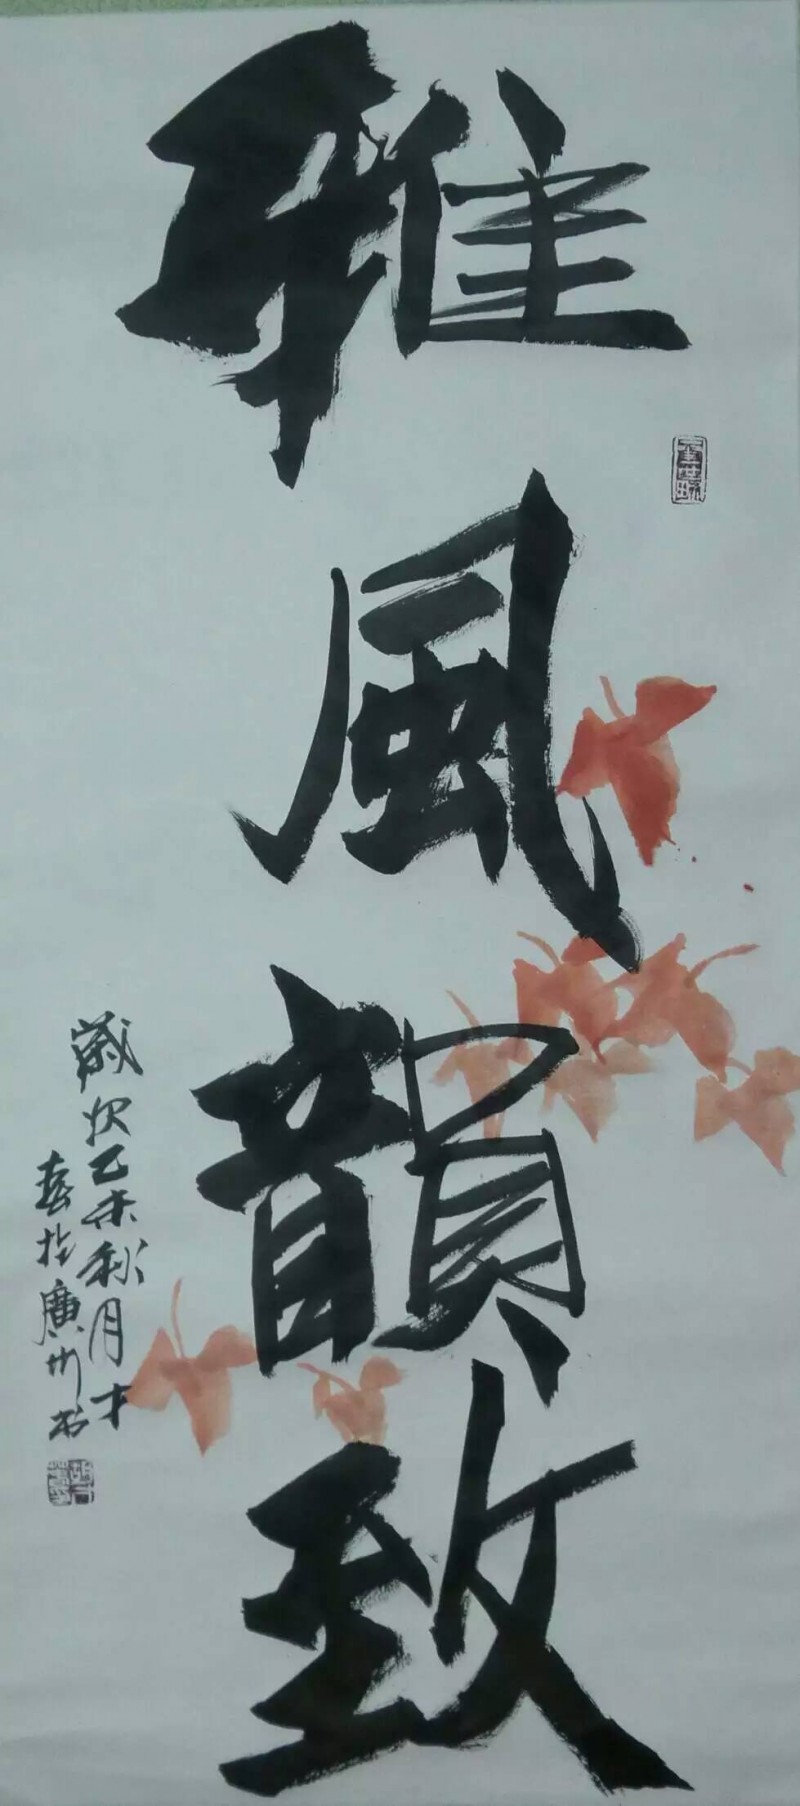 雅風韻致
歲次乙未秋月才
春於廣州书